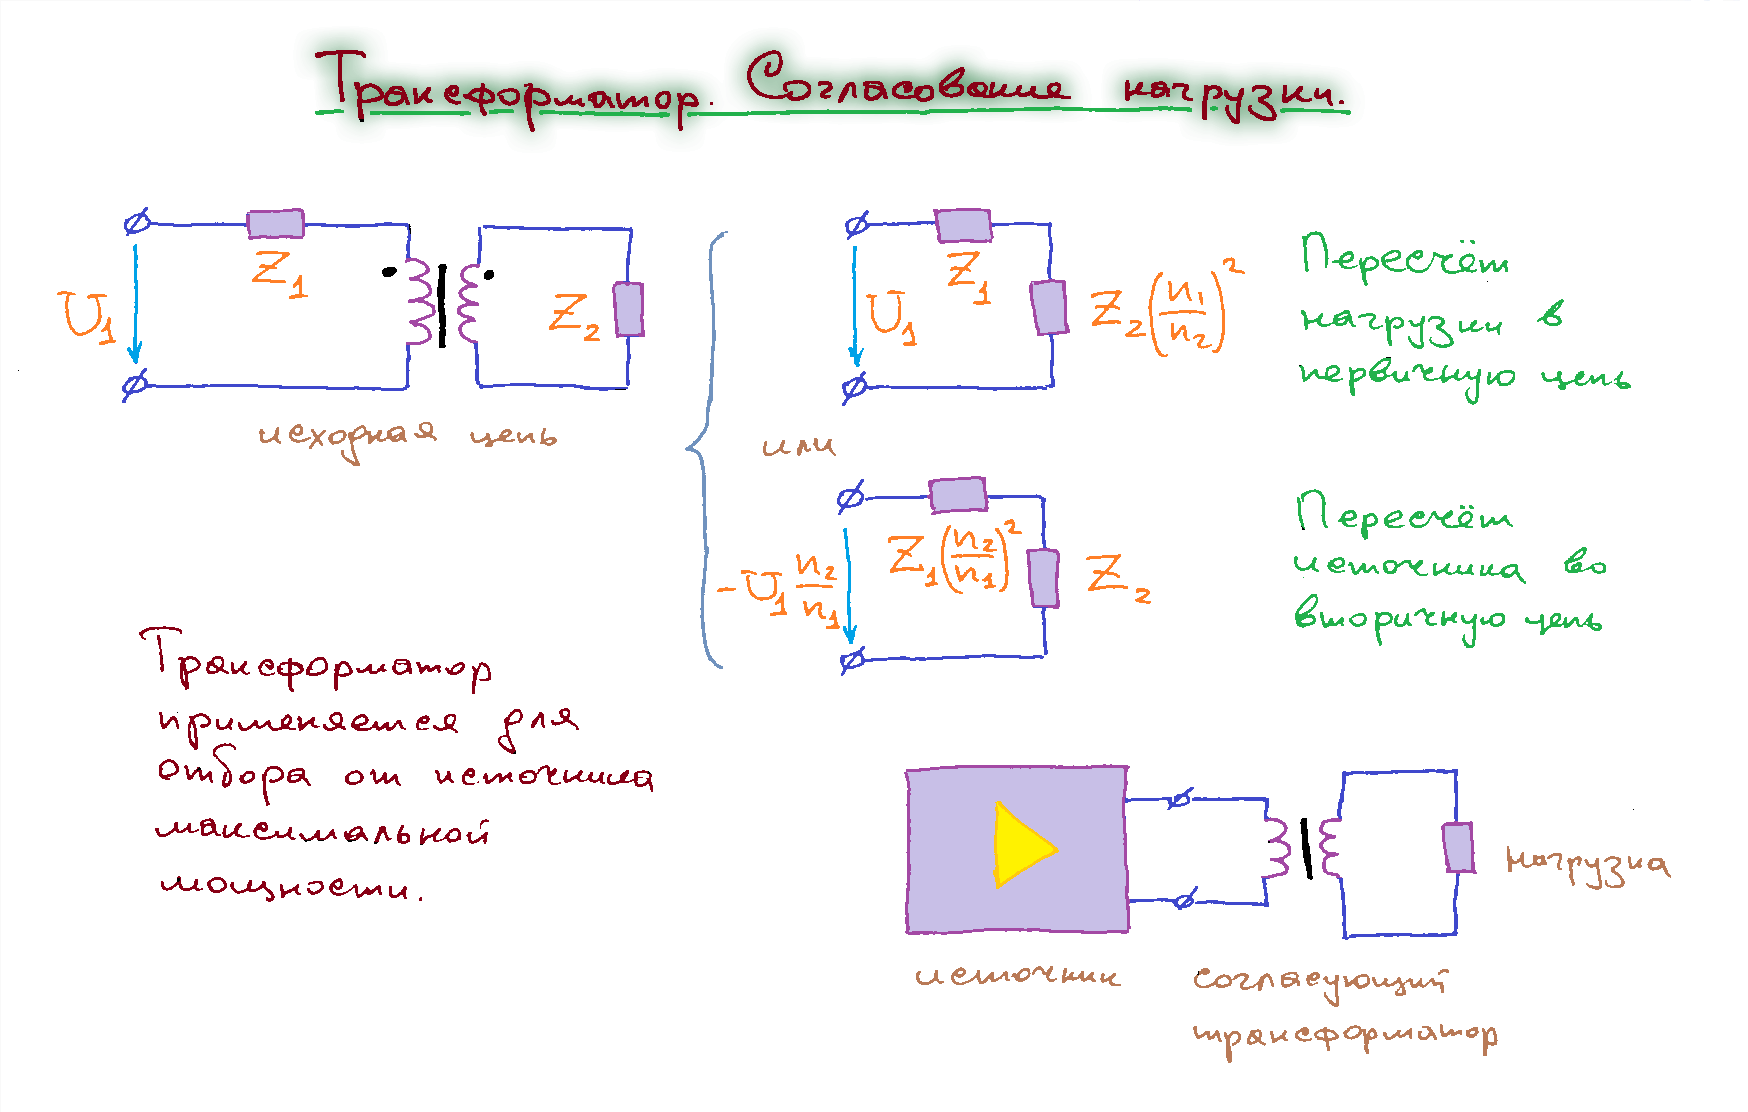 Трансформатор. Согласование нагрузки.
Z₁
U₁
Z₂
исходная цепь
Z₁
U₁
Z₂(n₁/n₂)²
Пересчёт
нагрузки в
первичную цепь
или
-U₁ n₂/n₁
Z₁(n₂/n₁)²
Z₂
Пересчёт
источника во
вторичную цепь
Трансформатор
применяется для
отбора от источника
максимальной
мощности.
нагрузка
источник
согласующий
трансформатор